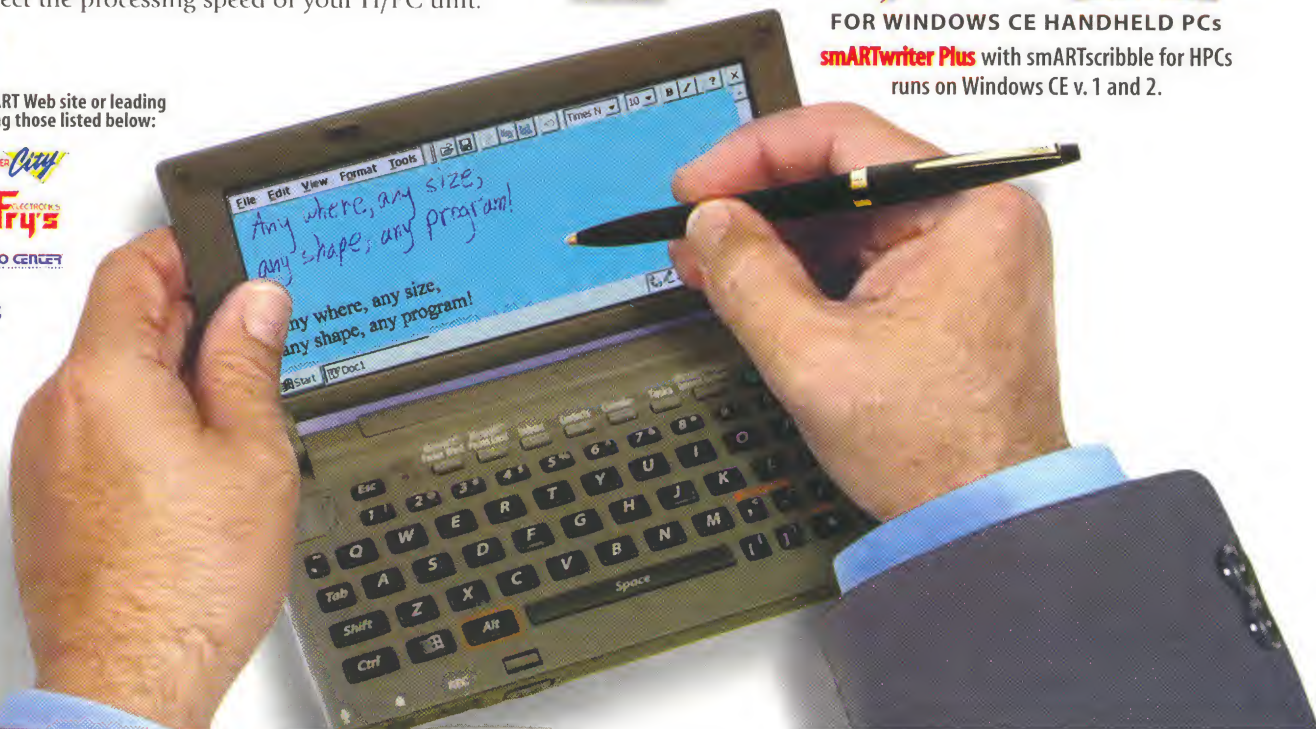 ect the processing speed of your H/PC unit.
FOR WINDOWS CE HANDHELD PCs
smARTwriter Plus with smARTscribble for HPCs
runs on Windows CE v. 1 and 2.
RT Web site or leading
ng those listed below:
ER City
Fry's ELECTRONICS
O CENTER
File Edit View Format Tools Times N 10 B / ? X
Any where, any size,
any shape, any program!
ny where, any size,
any shape, any program!
Start Doc1
Contacts Calendar Tasks
Esc 1 ! 2 @ 3 # 4 $ 5 % 6 ^ 7 & 8 *
Q W E R T Y U I O
Tab A S D F G H J K
Shift Z X C V B N M , <
Ctrl Alt Space [ { ] }
REC